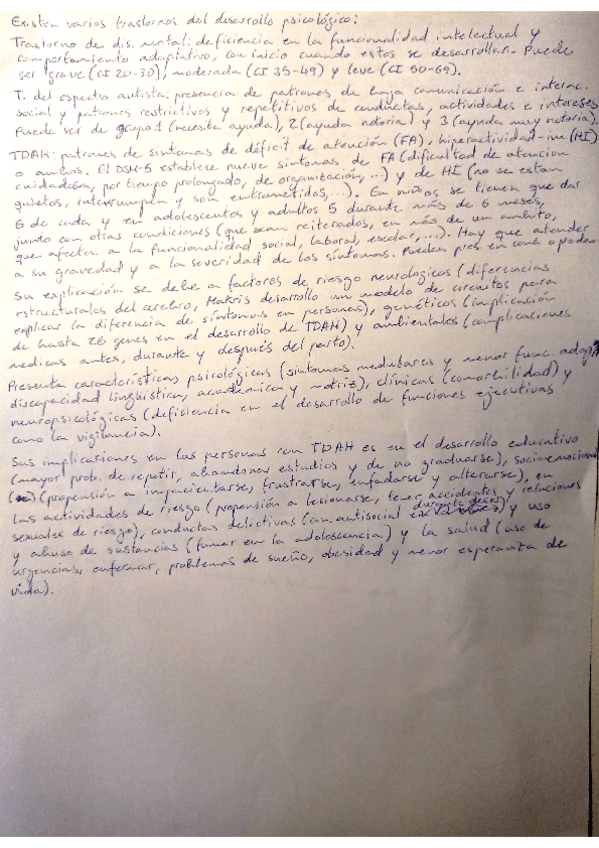 Existen varios trastornos del desarrollo psicológico:
Trastorno de dis. mental: deficiencia en la funcionalidad intelectual y
comportamiento adaptativo, con inicio cuando estos se desarrollan. Puede
ser grave (CI 20-30), moderada (CI 35-49) y leve (CI 50-69).
T. del espectro autista: presencia de patrones de baja comunicación e interac.
social y patrones restrictivos y repetitivos de conductas, actividades e intereses
Puede ser de grupo 1 (necesita ayuda), 2 (ayuda notoria) y 3 (ayuda muy notoria).
TDAH: patrones de síntomas de déficit de atención (FA), hiperactividad-im (HI)
o ambos. El DSM-5 establece nueve síntomas de FA (dificultad de atención
cuidadosa, por tiempo prolongado, de organización,...) y de HI (no se están
quietos, interrumpen y son entrometidos,...). En niños se tienen que dar
6 de cada y en adolescentes y adultos 5 durante más de 6 meses,
junto con otras condiciones (que sean reiterados, en más de un ámbito,
que afecten a la funcionalidad social, laboral, escolar,...). Hay que atender
a su gravedad y a la severidad de los síntomas. Pueden pres en
Su explicación se debe a factores de riesgo neurológicos (diferencias
estructurales del cerebro, Makris desarollo un modelo de circuitos para
explicar la diferencia de síntomas en personas), genéticos (implicación
de hasta 26 genes en el desarrollo de TDAH) y ambientales (complicaciones
medicas antes, durante y después del parto).
Presenta características psicológicas (síntomas medulares y menor func. adap,
discapacidad lingüística, académica y motriz), clínicas (comorbilidad) y
neuropsicológicas (deficiencia en el desarrollo de funciones ejecutivas
como la vigilancia).
Sus implicaciones en las personas con TDAH es en el desarrollo educativo
(mayor prob. de repetir, abandonar estudios y de no graduarse), socioemocional
(propensión a impacientarse, frustrarse, enfadarse y alterarse), en
las actividades de riesgo (propensión a lesionarse, tener accidentes y relaciones
sexuales de riesgo), conductas delictivas (con. antisocial durante) y uso
y abuso de sustancias (fumar en la adolescencia) y la salud (uso de
urgencias, enfermar, problemas de sueño, obesidad y menor esperanza de
vida).